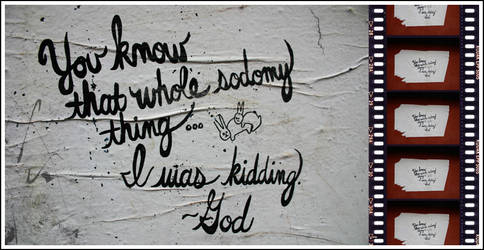 You know
that whole sodomy
thing...
I was kidding.
~God